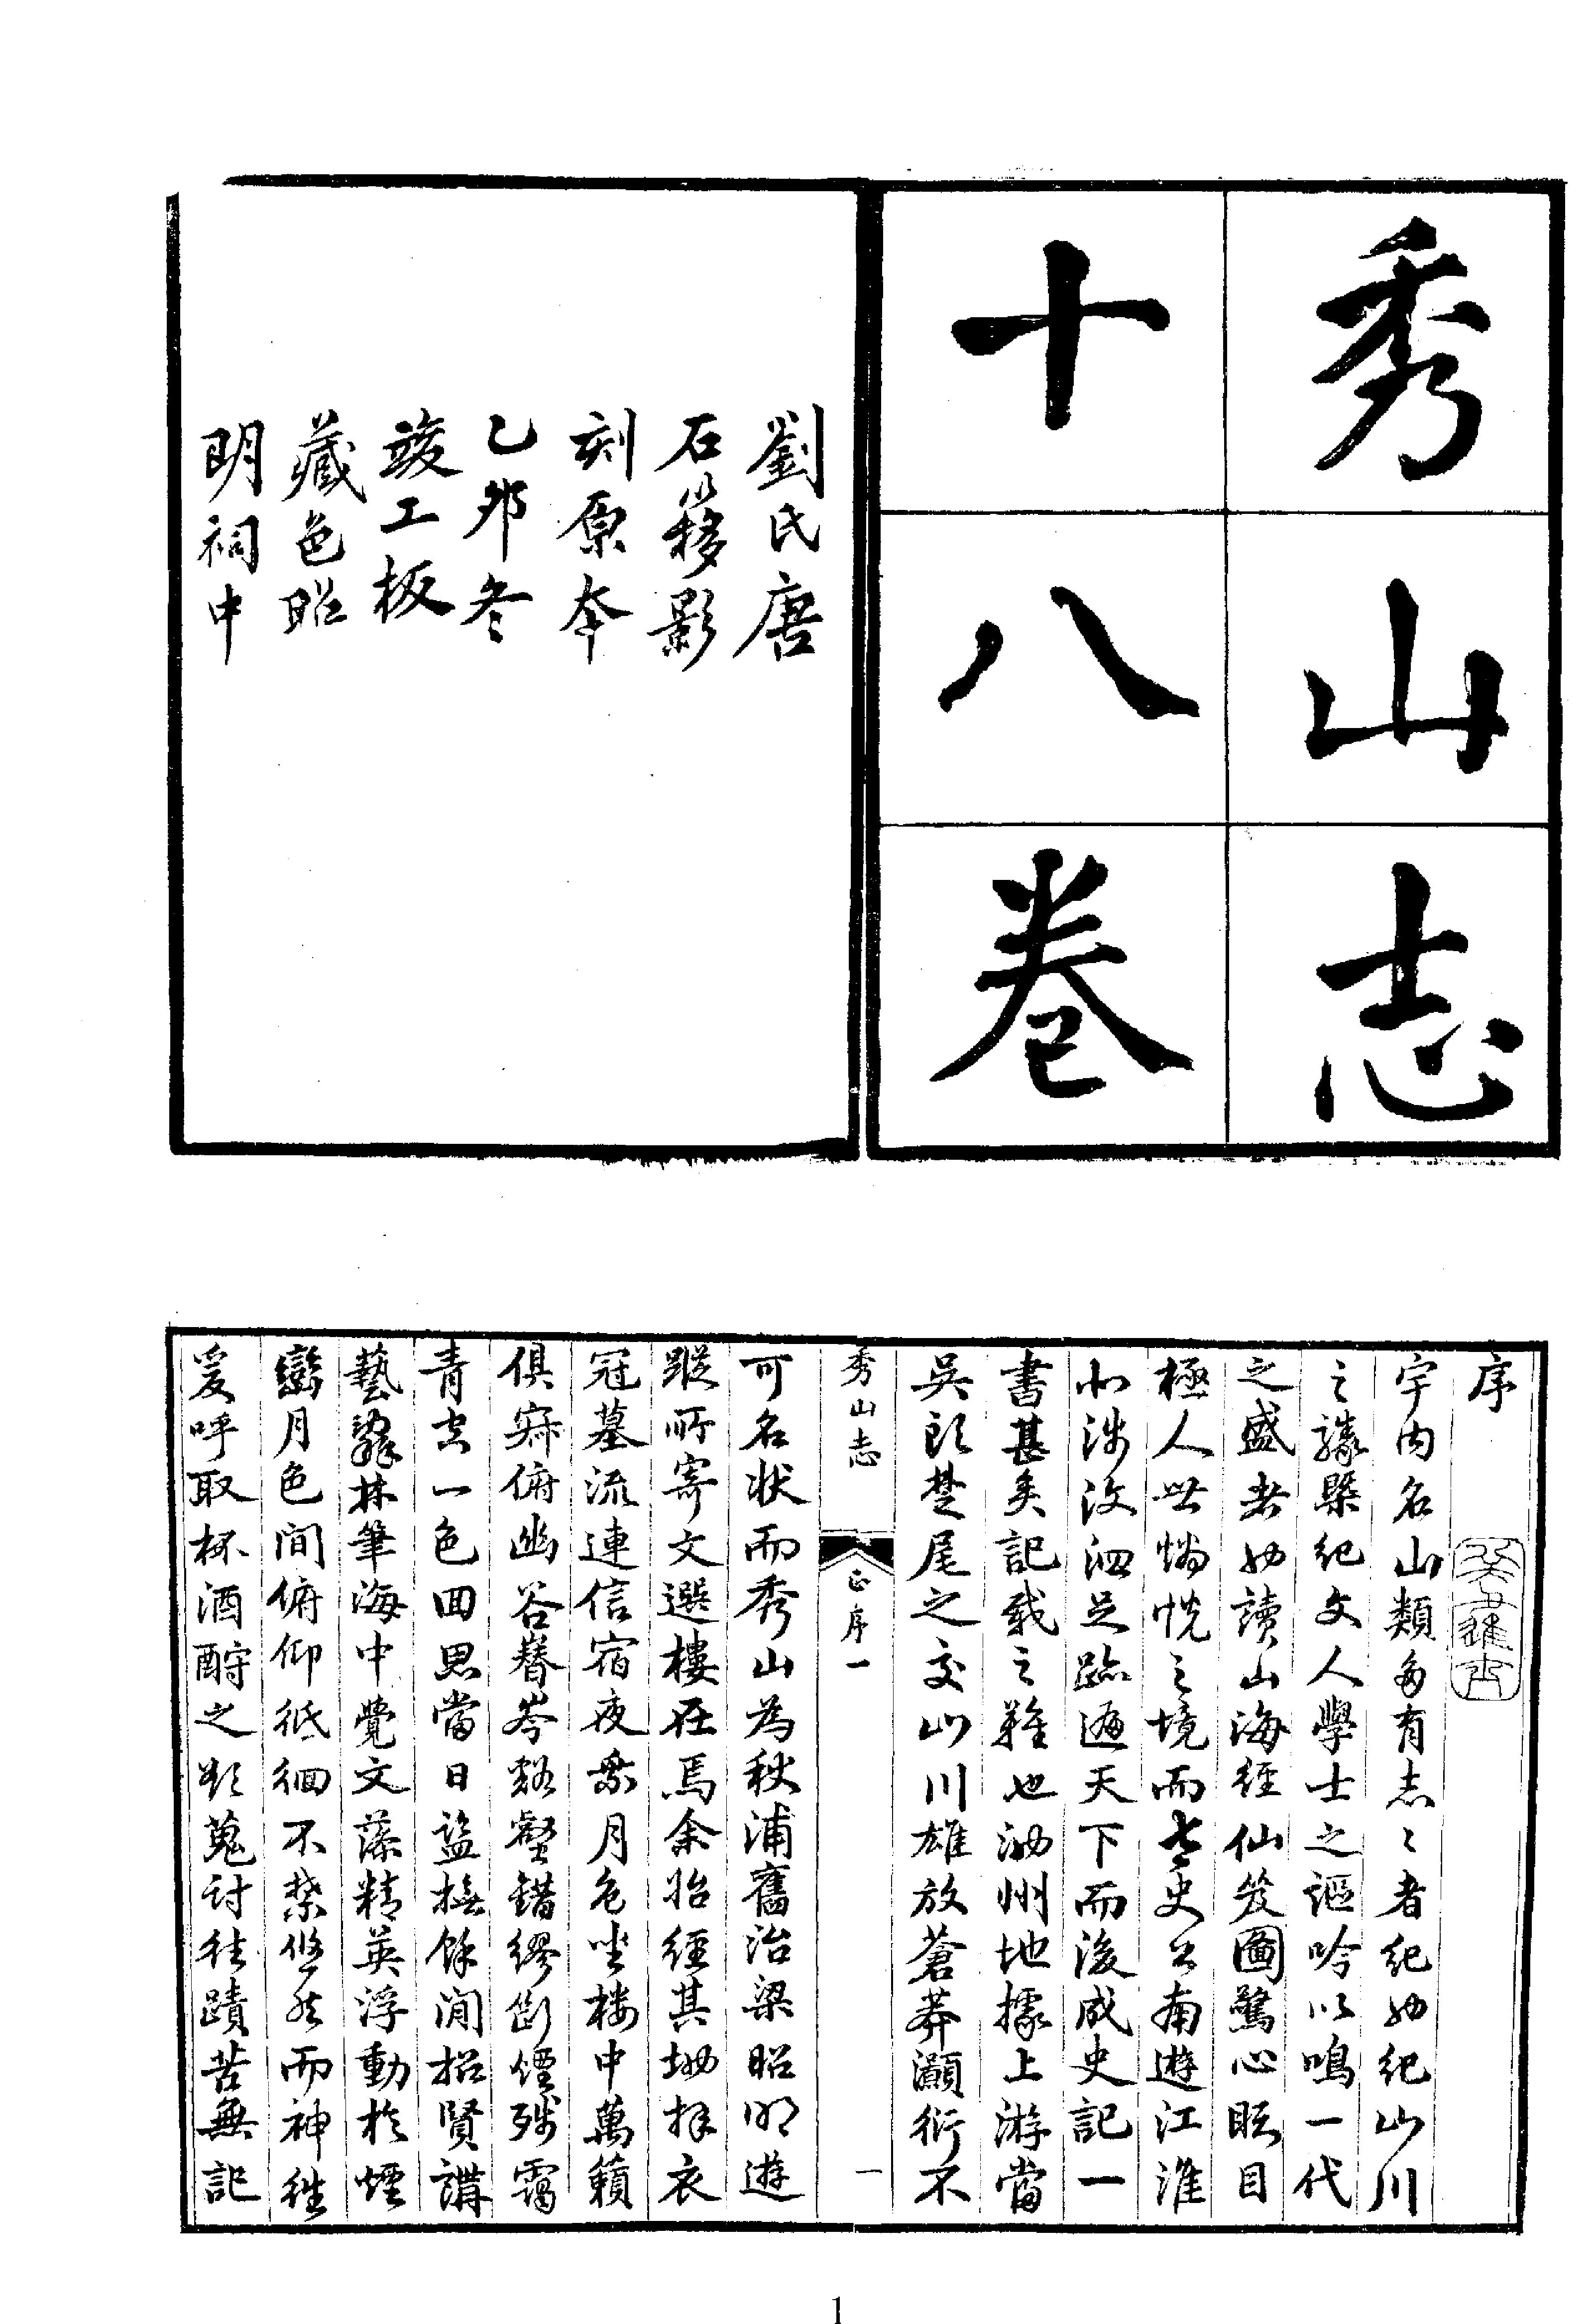 秀山志
十八卷
劉氏唐
石簃影
刻原本
乙卯冬
竣工板
藏邑昭
明祠中
序
宇内名山類多有志〻者紀也紀山川
之讖槩紀文人學士之謳吟以鳴一代
之盛者如讀山海經仙笈圖驚心眩目
極人世惝恍之境而太史公南遊江淮
北涉汶泗足跡遍天下而後成史記一
書甚矣記載之難也池州地據上游當
吳頭楚尾之交山川雄放蒼莽灝衍不
秀山志
正序一
一
可名狀而秀山為秋浦舊治梁昭明遊
蹤所寄文選樓在焉余治經其地拜衣
冠墓流連信宿夜乘月色坐樓中萬籟
俱寂俯幽谷瞽岑谿壑錯繆斷煙殘靄
青杳一色囬思當日監撫餘閒招賢講
藝辭林筆海中覺文藻精英浮動於煙
巒月色間俯仰低徊不禁悠然而神往
爰呼取杯酒酹之欲蒐討往蹟苦無記